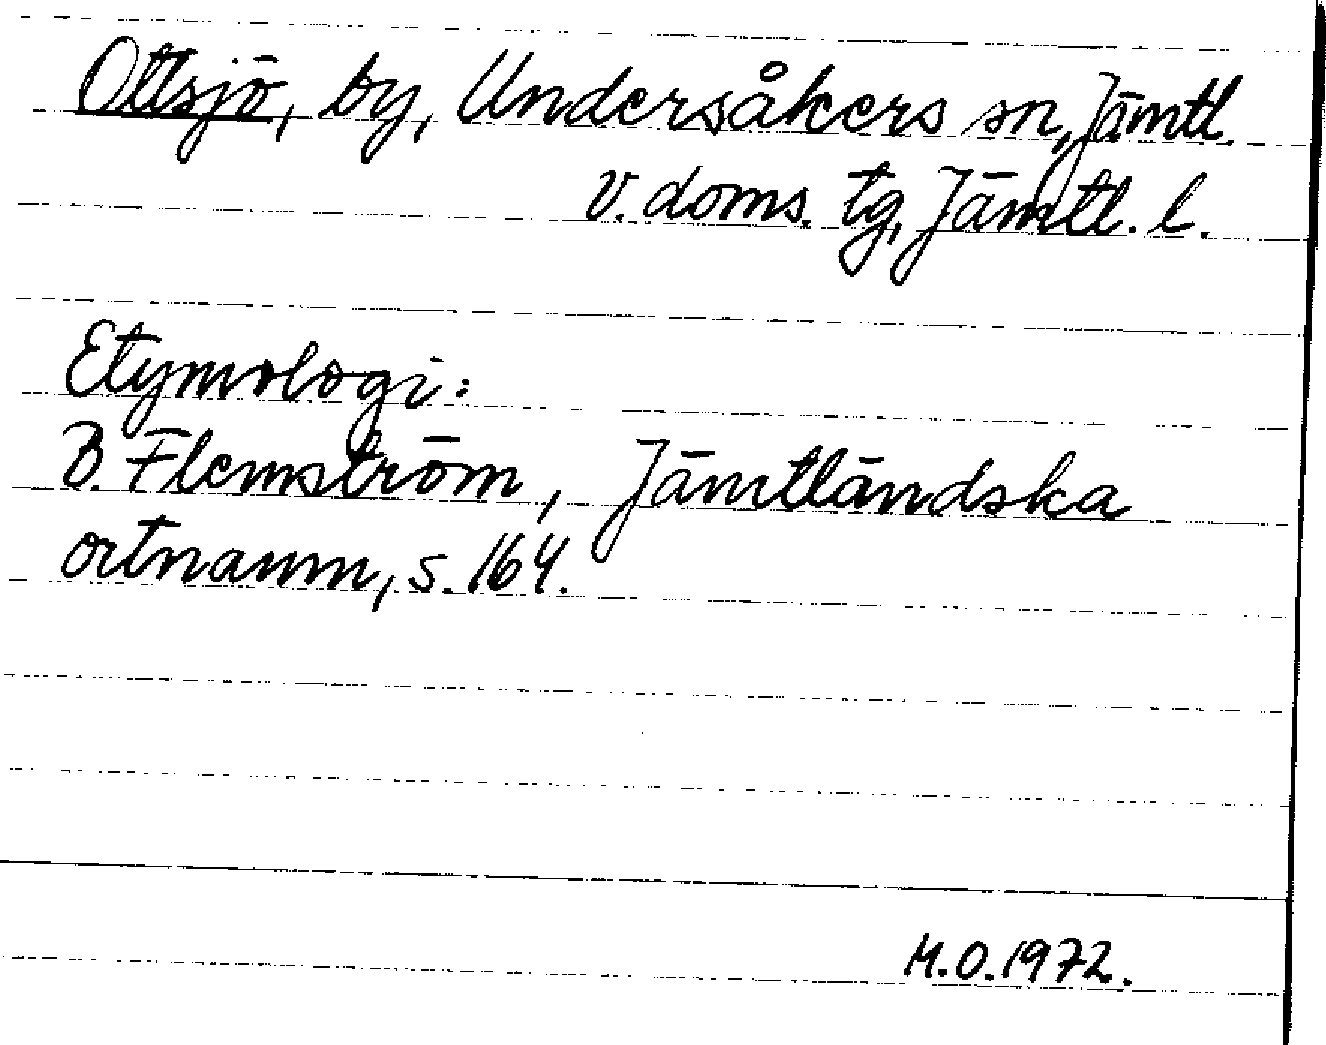 Ottsjö, by, Undersåkers sn, Jämtl.
v. doms. tg, Jämtl. l.
Etymologi:
B. Flemström, Jämtländska
ortnamn, s. 164.
M.O. 1972.